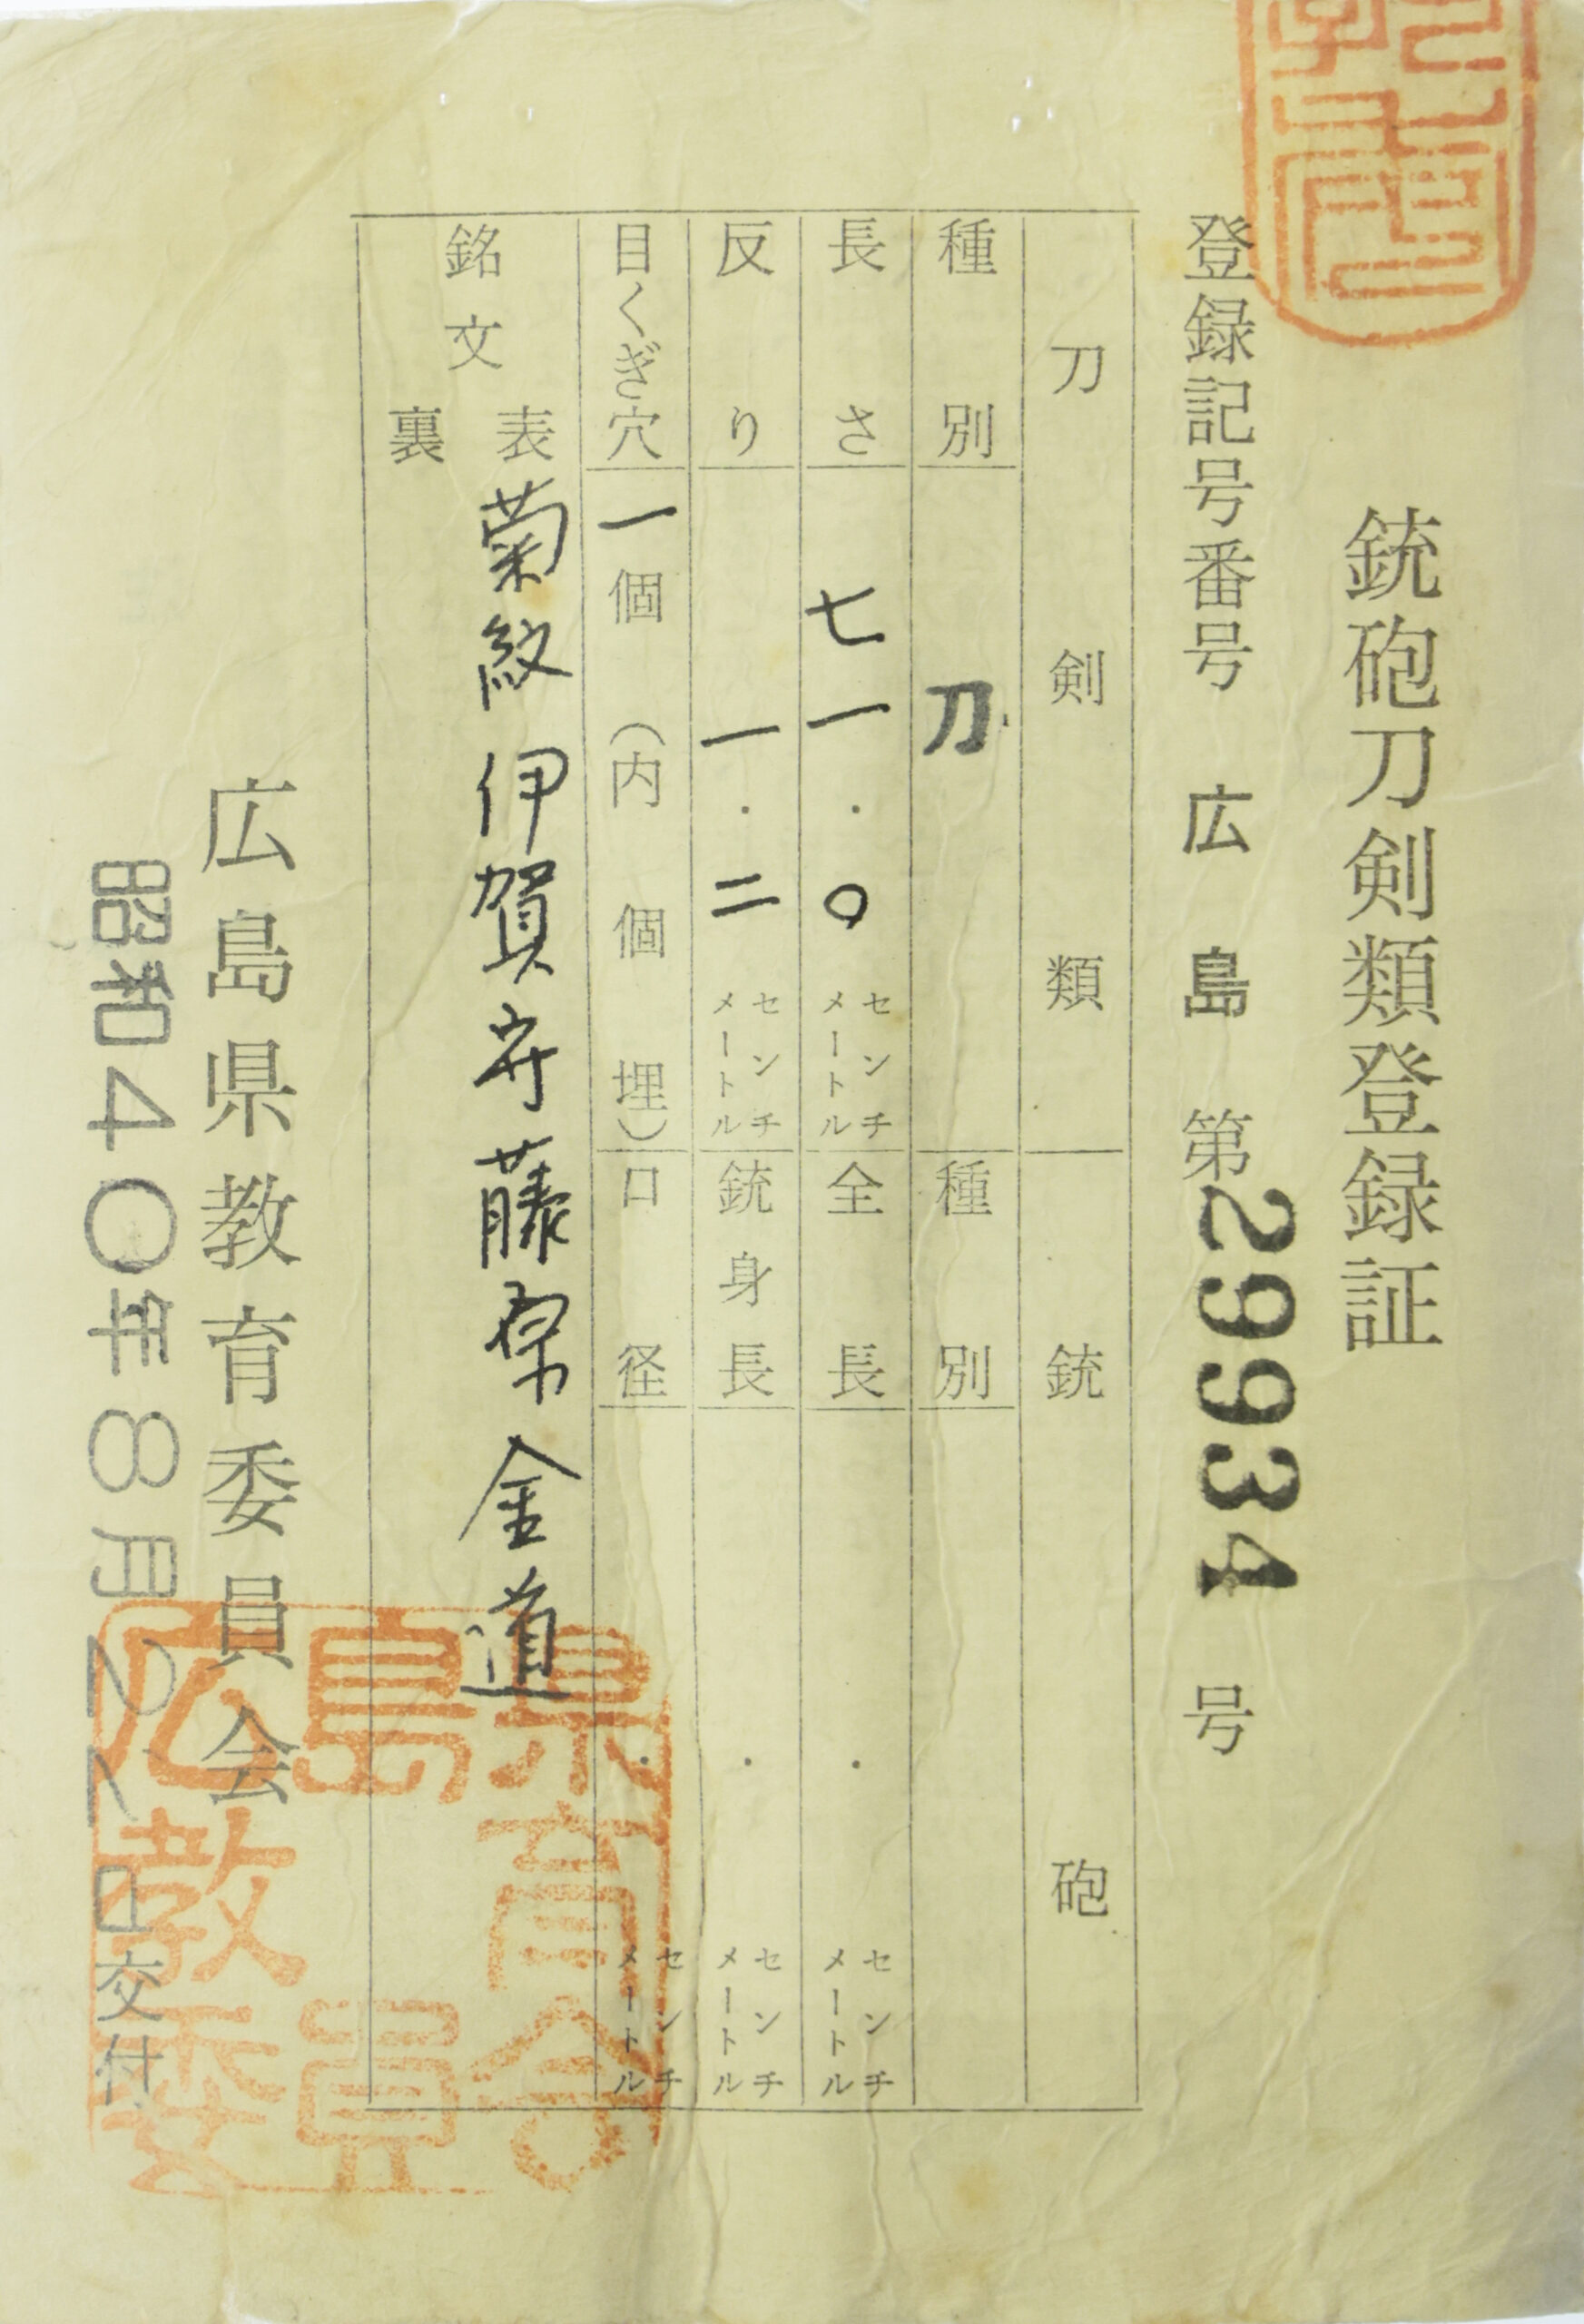 銃砲刀剣類登録証
登録記号番号 広島 第29934号
刀剣類
種別 刀
長さ 七一.〇 センチメートル
反り 一.二 センチメートル
目くぎ穴 一個(内 個 埋)
銘文
表 菊紋 伊賀守藤原金道
裏
銃砲
種別
全長 . センチメートル
銃身長 . センチメートル
口径 . センチメートル
広島県教育委員会
昭和40年8月 日交付
広島県教育委員会